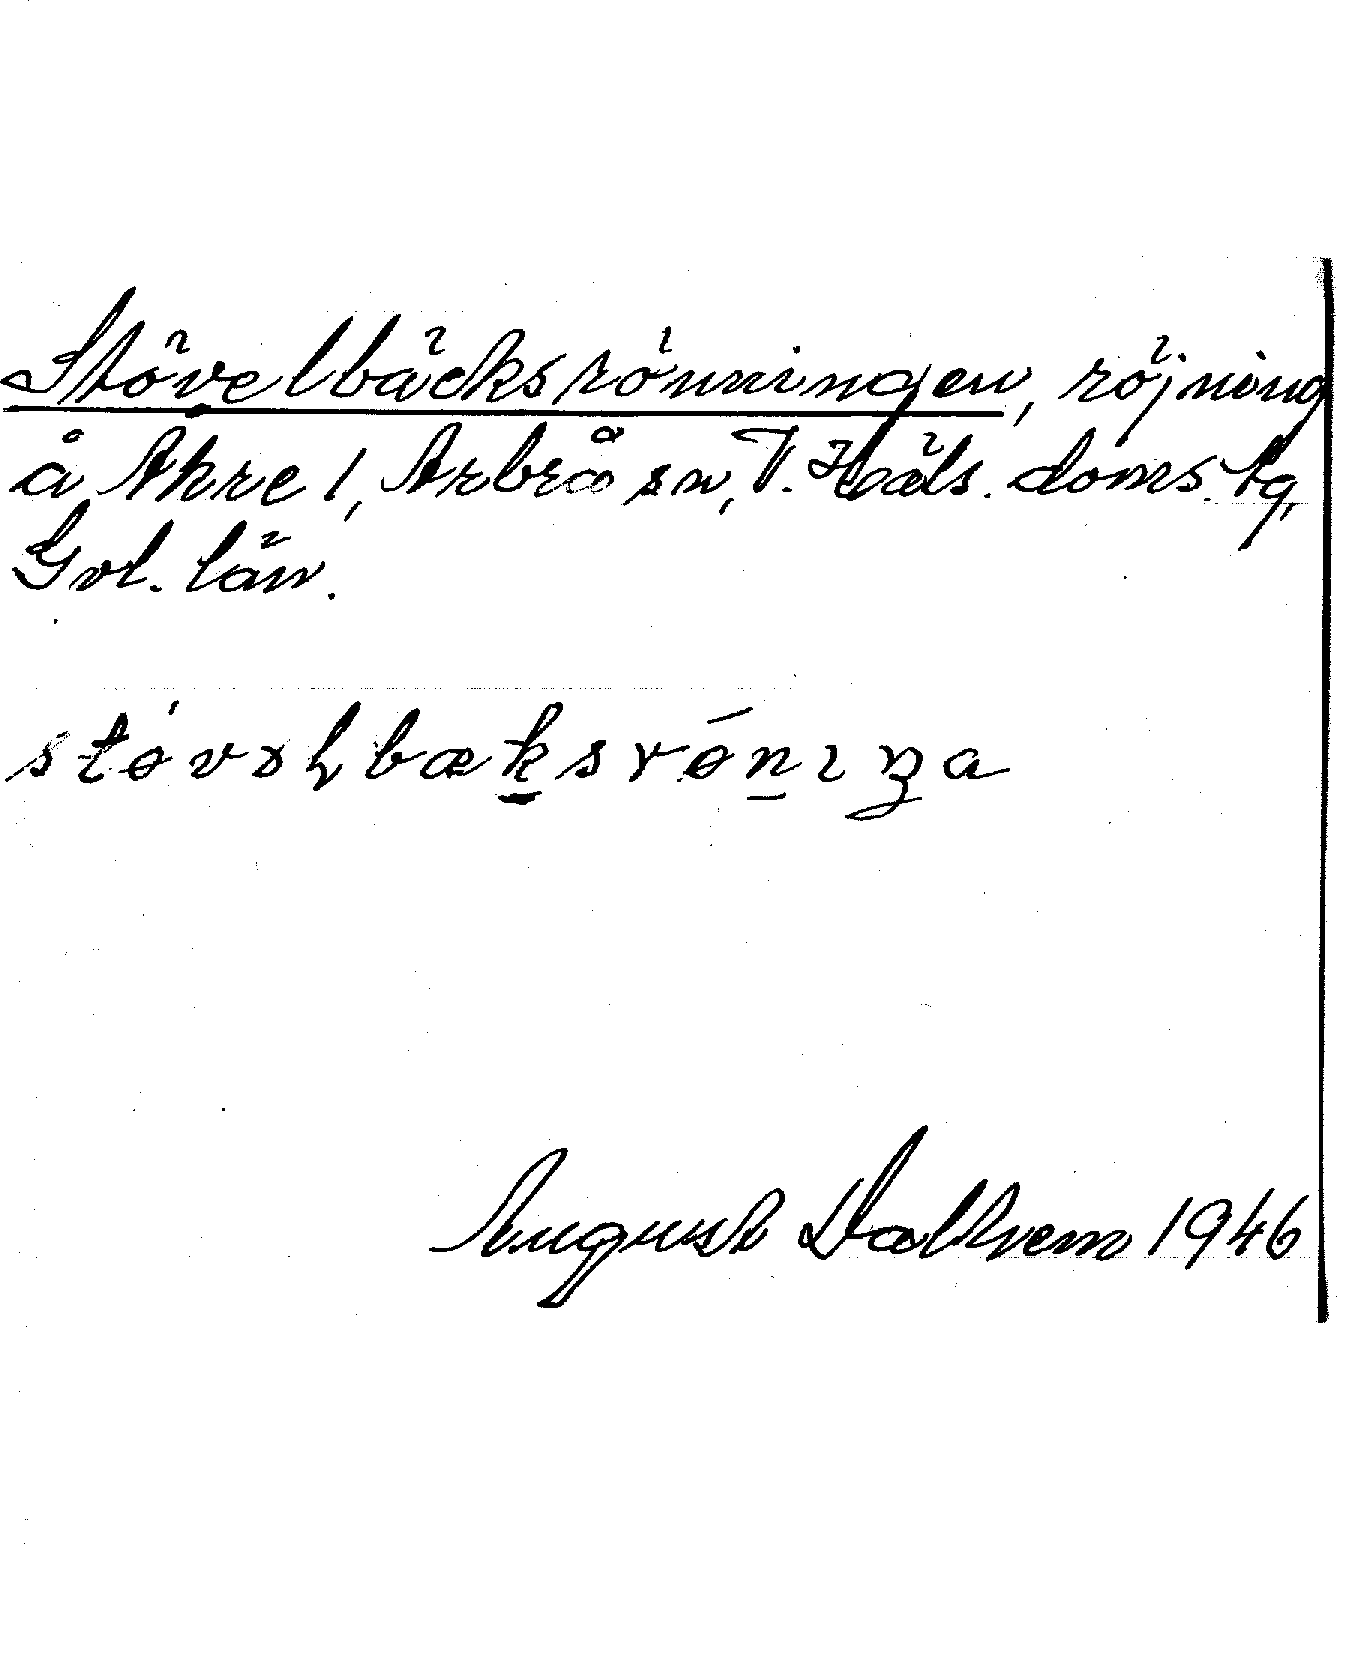 Stövelbäcksrönningen, röjning
å Åkre 1, Arbrå sn, V. Häls. doms. tg,
Gvl. län.
August Dalhem 1946